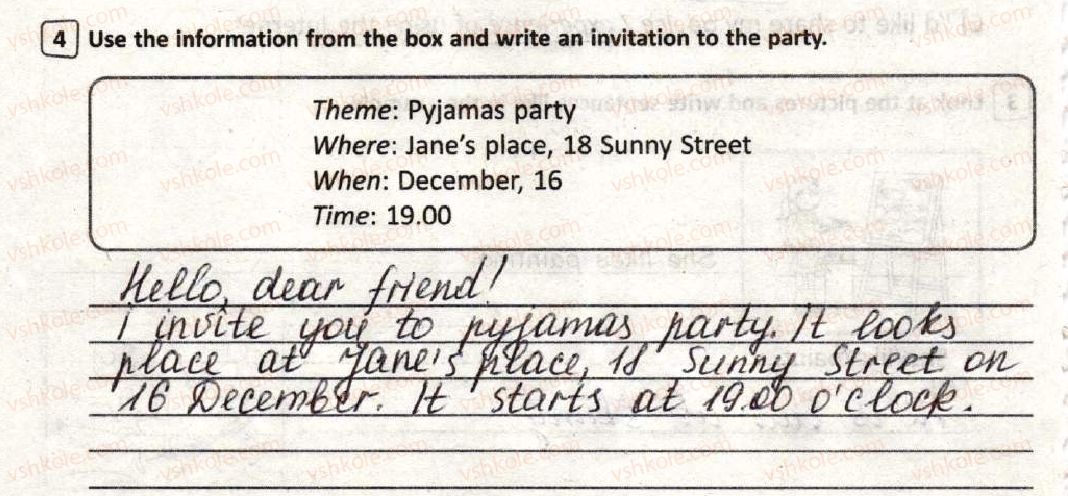 4 Use the information from the box and write an invitation to the party.
Theme: Pyjamas party
Where: Jane's place, 18 Sunny Street
When: December, 16
Time: 19.00
Hello, dear friend!
I invite you to pyjamas party. It looks
place at Jane's place, 18 Sunny Street on
16 December. It starts at 19.00 o'clock.
vshkole.com